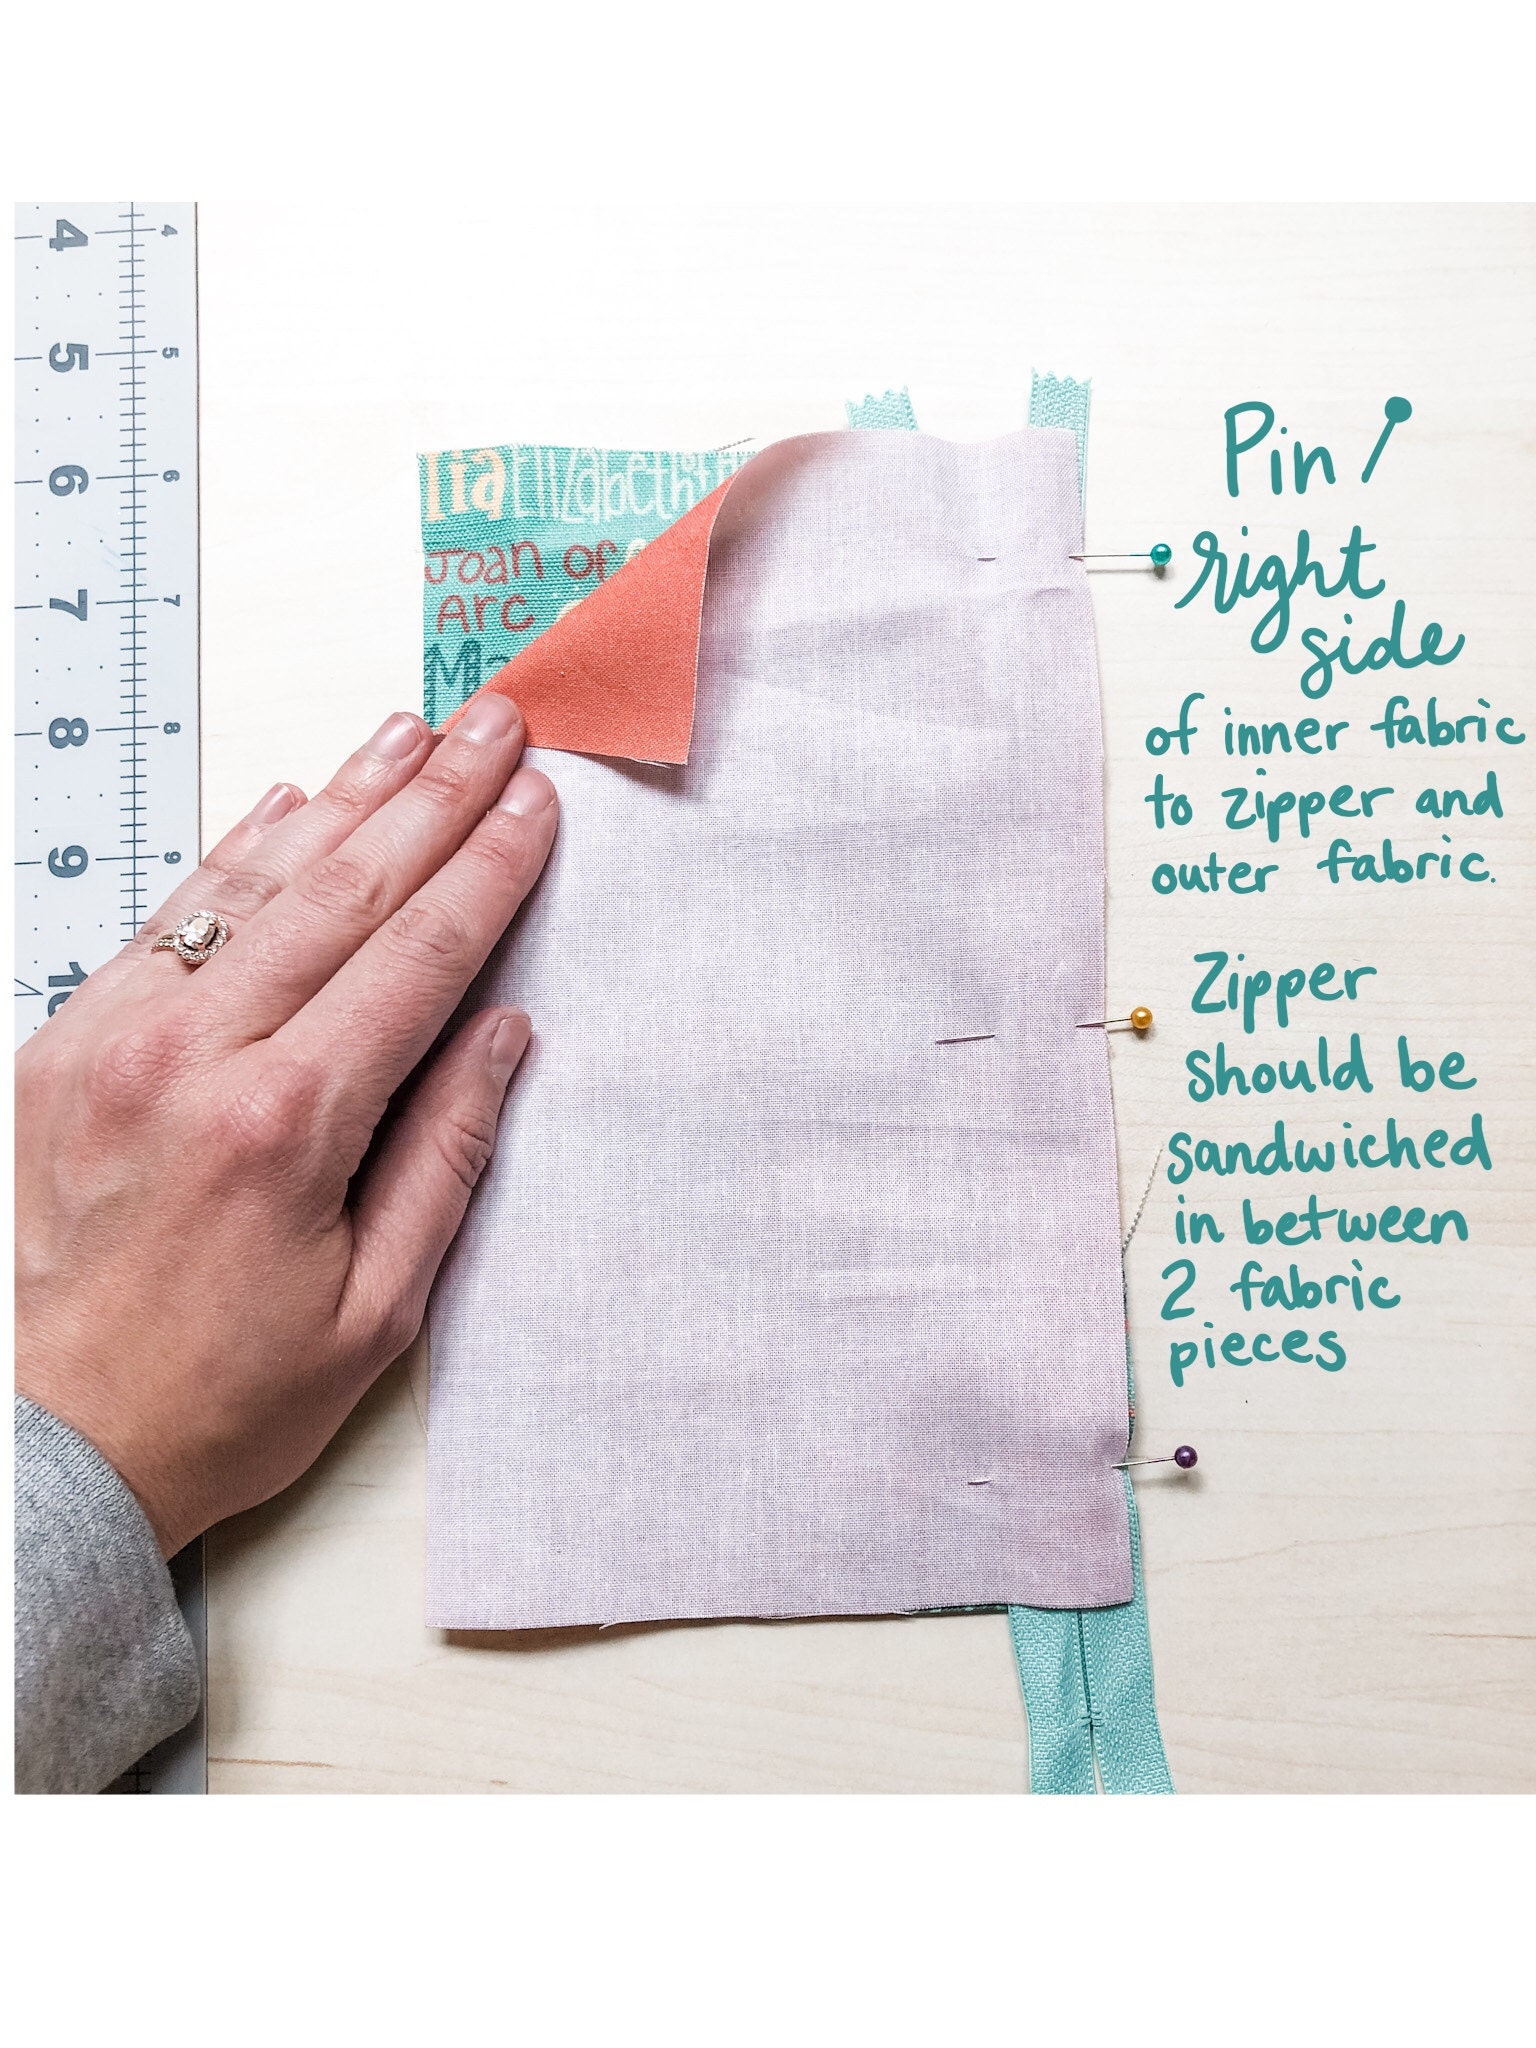 4 4
5 5
6 6
7 7
8 8
9 9
10
Elizabeth
Joan of
Arc
Pin
right
side
of inner fabric
to zipper and
outer fabric.
Zipper
should be
sandwiched
in between
2 fabric
pieces